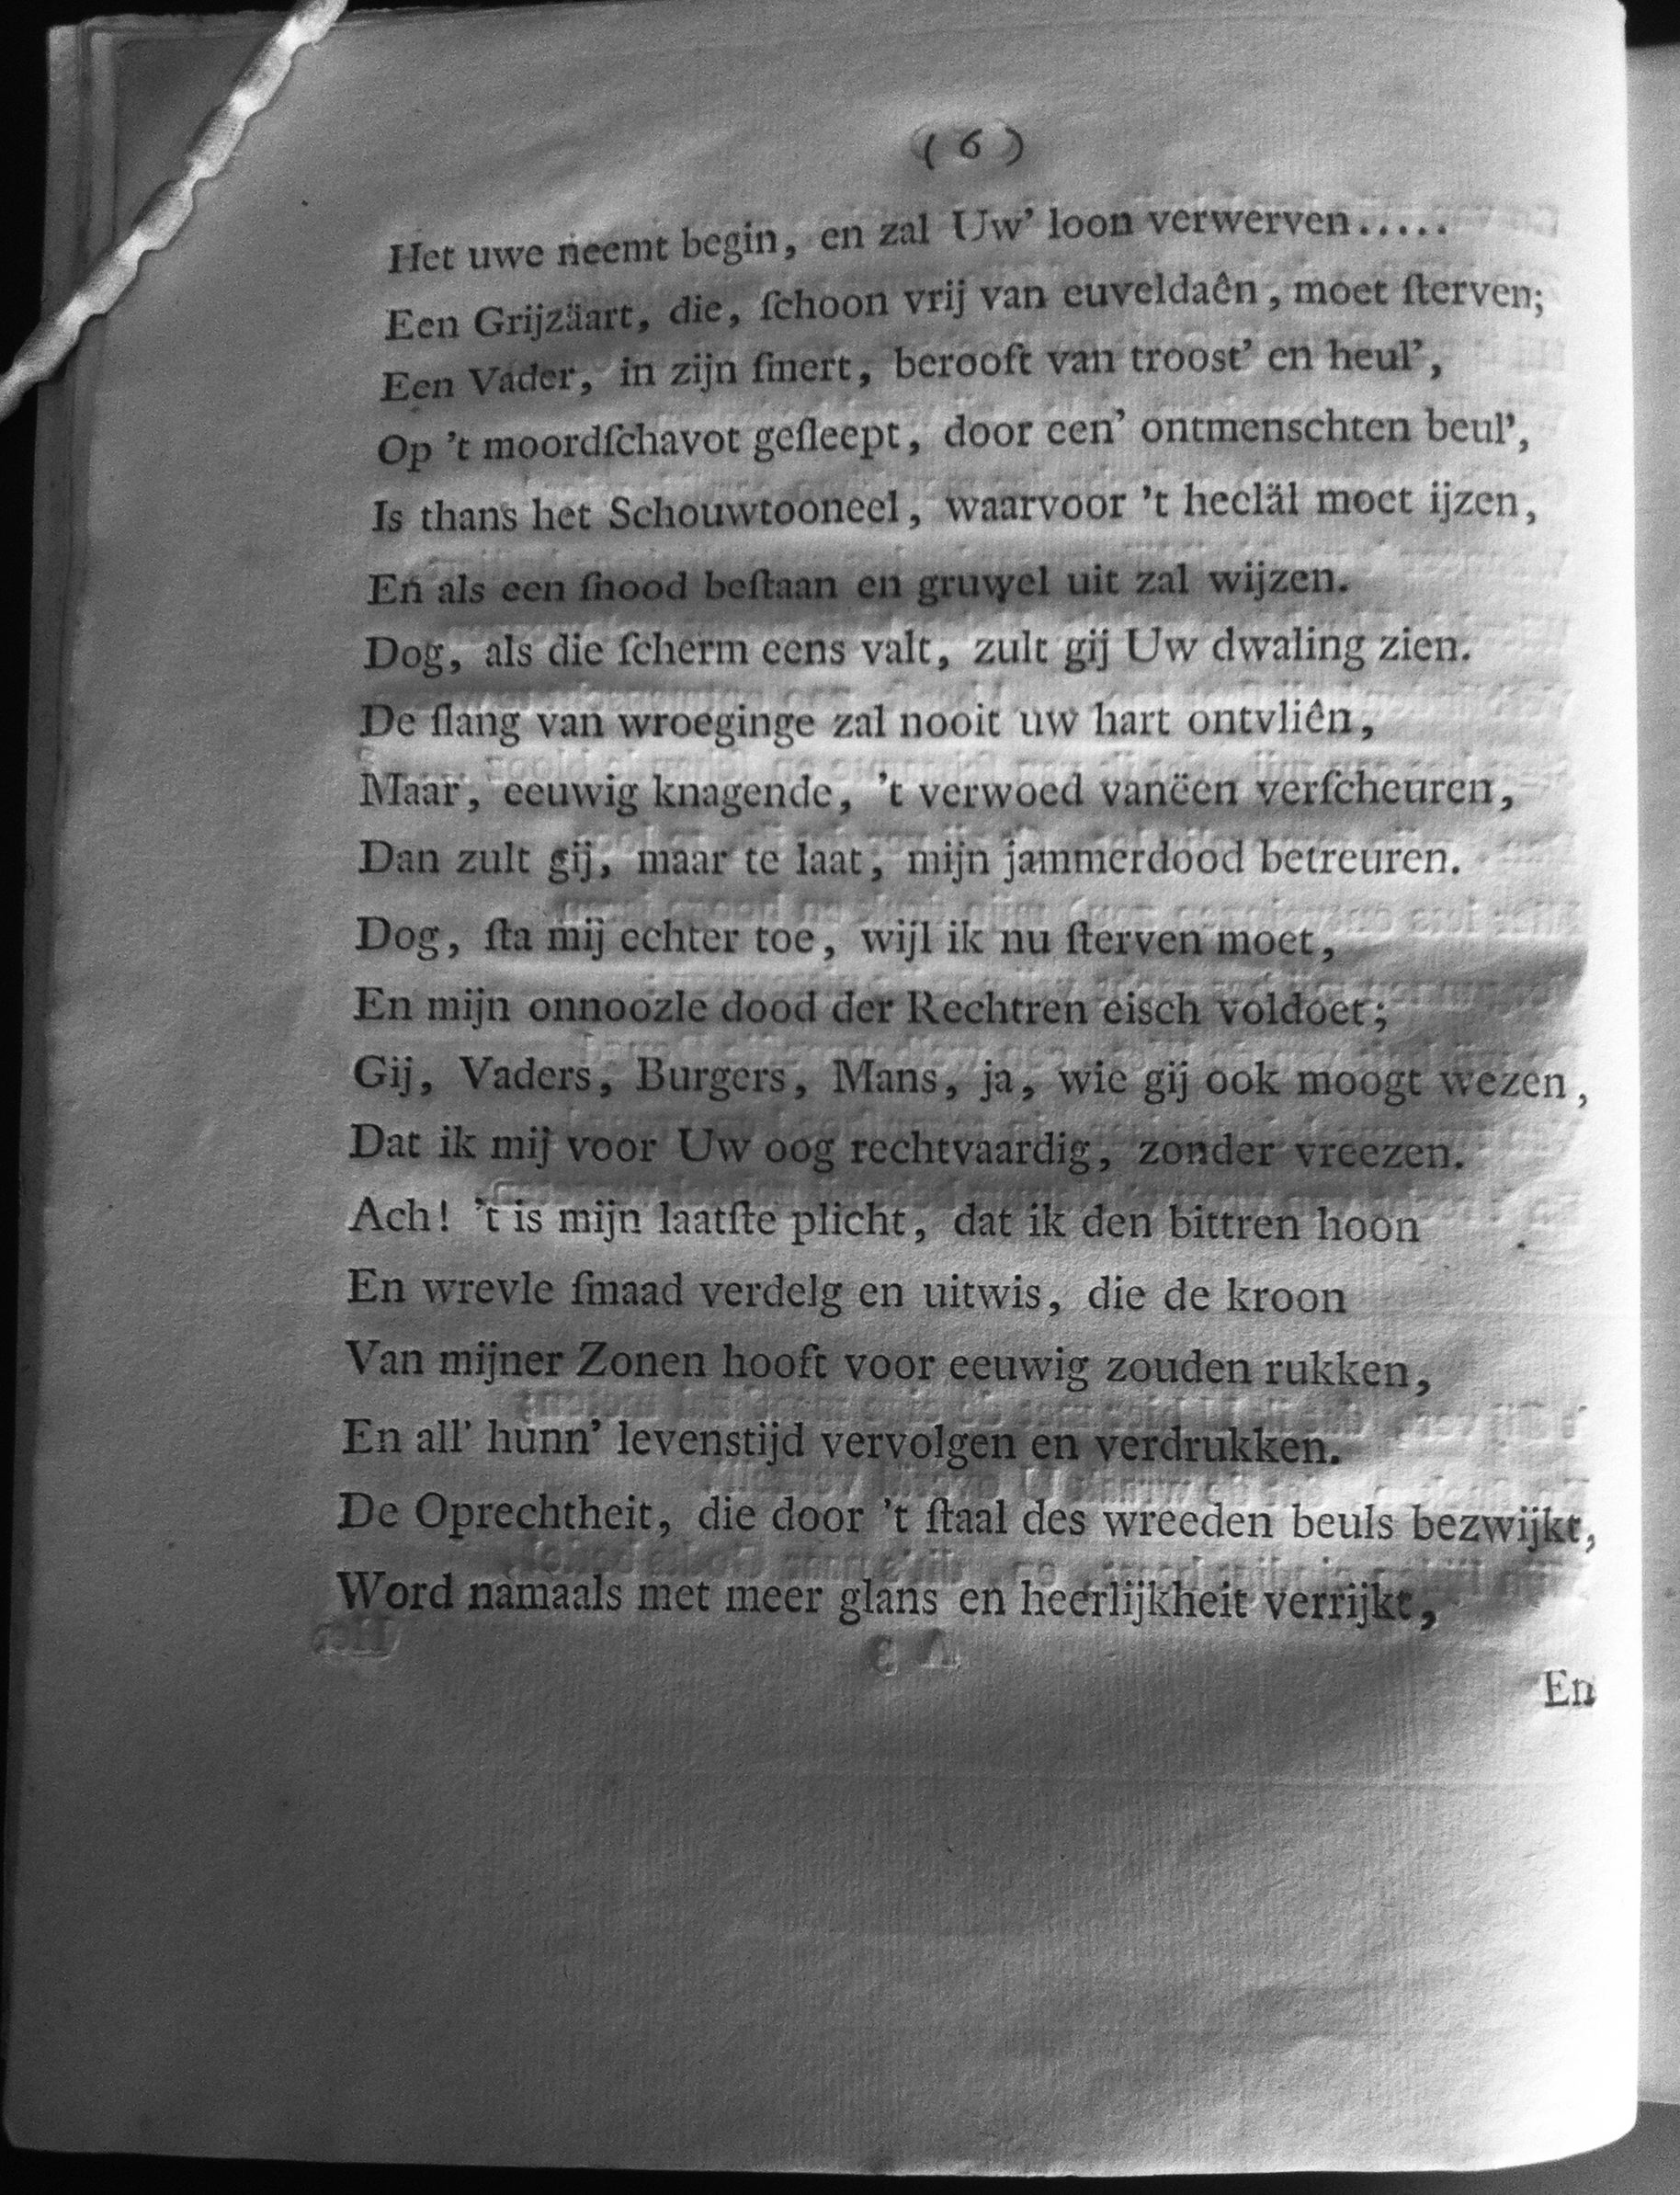 ( 6 )
Het uwe neemt begin, en zal Uw' loon verwerven.....
Een Grijzäart, die, ſchoon vrij van euveldaên, moet ſterven;
Een Vader, in zijn ſmert, berooft van troost' en heul',
Op 't moordſchavot geſleept, door een' ontmenschten beul',
Is thans het Schouwtooneel, waarvoor 't heeläl moet ijzen,
En als een ſnood beſtaan en gruwel uit zal wijzen.
Dog, als die ſcherm eens valt, zult gij Uw dwaling zien.
De ſlang van wroeginge zal nooit uw hart ontvliên,
Maar, eeuwig knagende, 't verwoed vanëen verſcheuren,
Dan zult gij, maar te laat, mijn jammerdood betreuren.
Dog, ſta mij echter toe, wijl ik nu ſterven moet,
En mijn onnoozle dood der Rechtren eisch voldoet;
Gij, Vaders, Burgers, Mans, ja, wie gij ook moogt wezen,
Dat ik mij voor Uw oog rechtvaardig, zonder vreezen.
Ach! 't is mijn laatſte plicht, dat ik den bittren hoon
En wrevle ſmaad verdelg en uitwis, die de kroon
Van mijner Zonen hooft voor eeuwig zouden rukken,
En all' hunn' levenstijd vervolgen en verdrukken.
De Oprechtheit, die door 't ſtaal des wreeden beuls bezwijkt,
Word namaals met meer glans en heerlijkheit verrijkt,
En